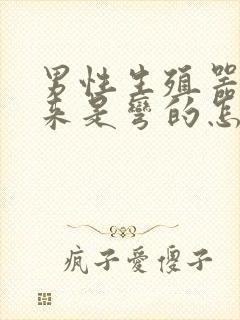 男性生殖器
来是弯的怎
疯子爱傻子